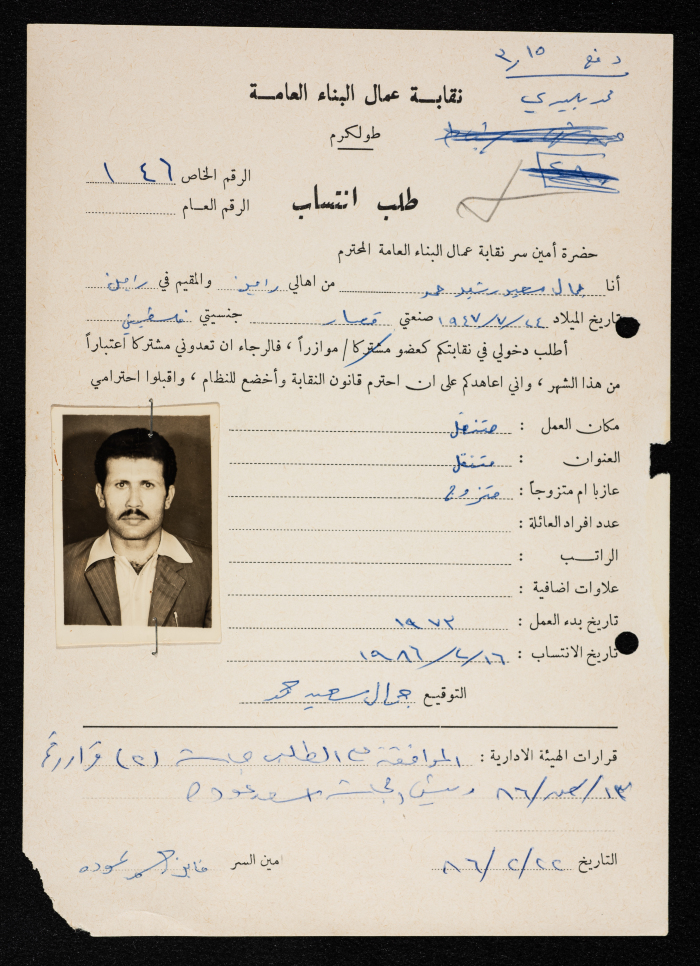 دفع ٣,١٥
نقابـة عمال البناء العامـة
طولكرم
الرقم الخاص ١٤٦
الرقم العـام
طلب انتساب
حضرة أمين سر نقابة عمال البناء العامة المحترم
أنا جمال سعيد رشيد حمد من اهالي رامين والمقيم في رامين
تاريخ الميلاد ١٩٤٧/٧/٢٤ صنعتي قصار جنسيتي فلسطيني
أطلب دخولي في نقابتكم كعضو مشتركا / موازراً ، فالرجاء ان تعدوني مشتركا اعتباراً
من هذا الشهر ، واني اعاهدكم على ان احترم قانون النقابة وأخضع للنظام ، واقبلوا احترامي
مكان العمل : متنقل
العنوان : متنقل
عازبا ام متزوجاً : متزوج
عدد افراد العائلة :
الراتــب :
علاوات اضافية :
تاريخ بدء العمل : ١٩٧٣
تاريخ الانتساب : ١٩٨٦/٢/١٦
التوقيع جمال سعيد حمد
قرارات الهيئة الادارية : الموافقة على الطلب جلسة (٢) قرار رقم
١٣/ص/٨٦ رئيس الجلسة اسعد عوده
التاريخ ٨٦/٢/٢٢ امين السر عوده